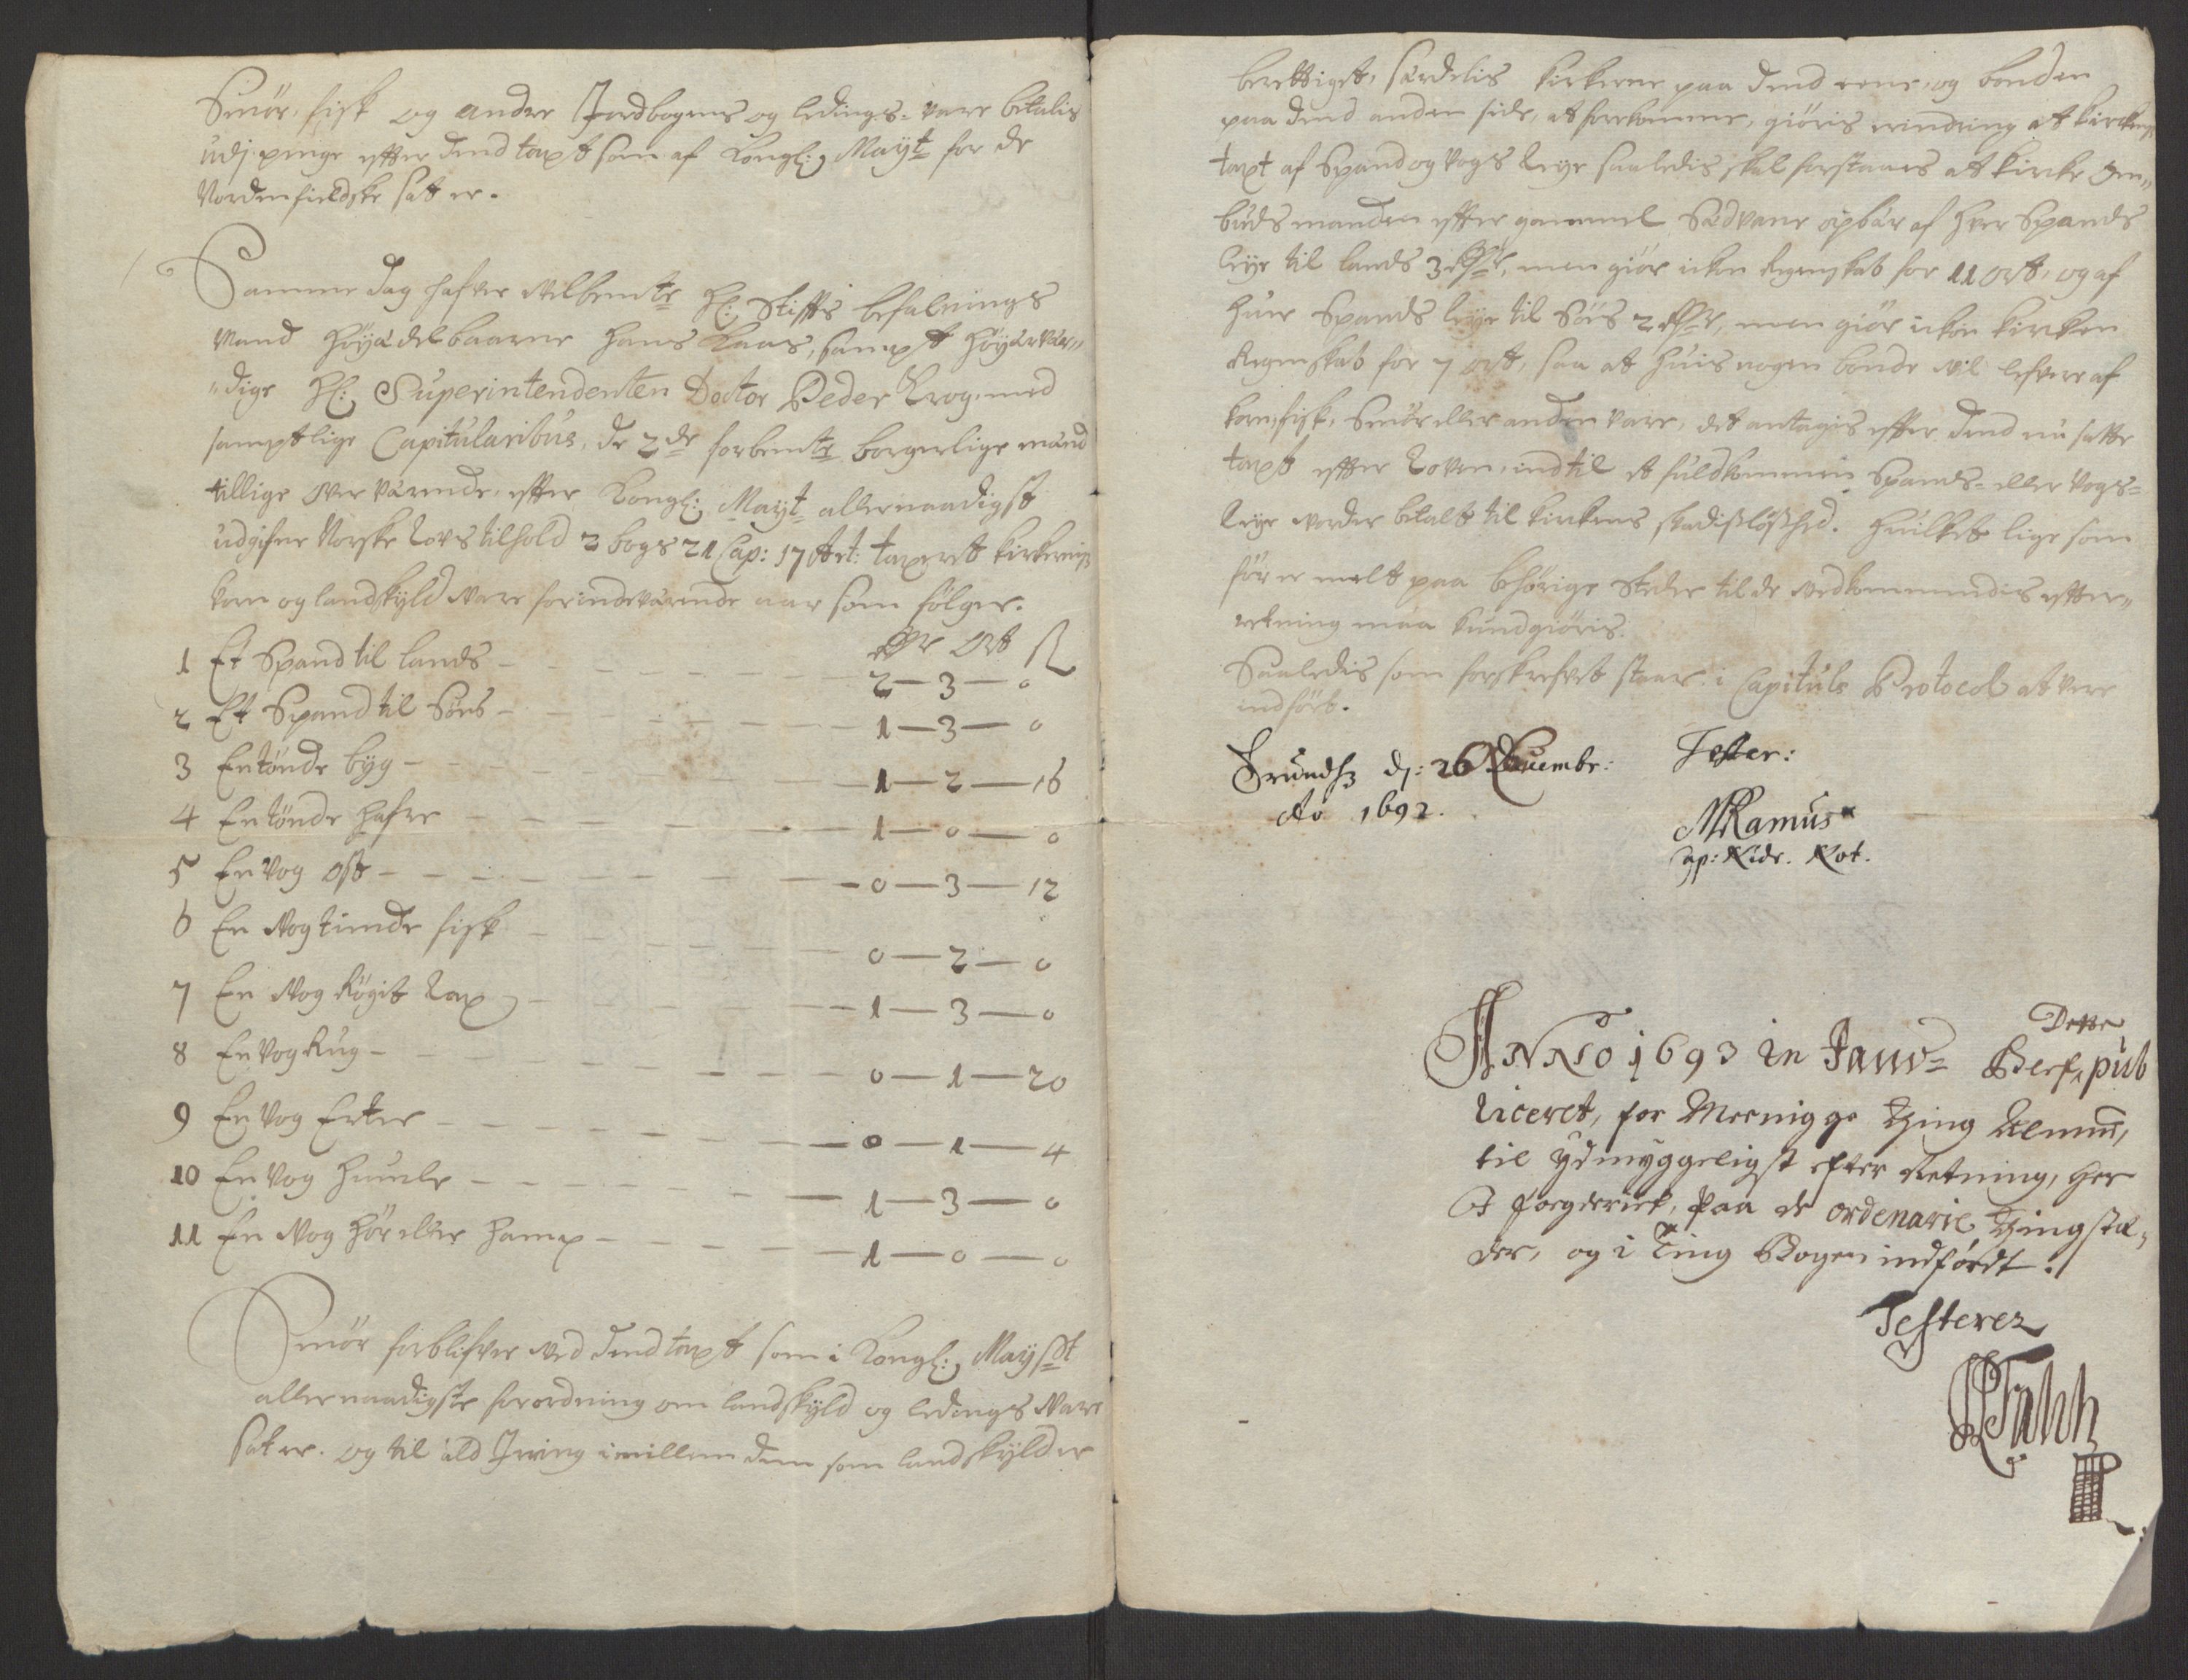 Smör, fisk og andre Jordbogens og ledings-vare betalis
udj penge effter dend taxt som af Kongl: Mayt for de
Nordenfieldske satt er.
Samme dag hafver velbemte Hl: Stiffts befalnings
Mand Höyædelbaarne Hans Kaas, sampt Höyærvær„
„dige Hl: Superintendenten Doctor Peder Krog, med
samptlige Capitularibus, de 2de forbemte borgerlige mænd
tillige overværende, effter Kongl: Mayt allernaadigst
udgifne Norske Lovs tilhold 2 bogs 21 Cap: 17 Art: taxerett kirkernis
korn og landskyld vare for indeværende aar som fölger.
Rdr Ort ß
1 Et Spand til lands - 2 — 3 — 0
2 Et Spand til Söes - 1 — 3 — 0
3 En tönde byg - 1 — 2 — 16
4 En tönde hafre - 1 — 0 — 0
5 En vog ost - 0 — 3 — 12
6 En vog tiende fisk - 0 — 2 — 0
7 En vog Rögit Lax - 1 — 3 — 0
8 En vog Rug - 0 — 1 — 20
9 En vog Erter - 0 — 1 — 4
10 En vog humle - 1 — 3 — 0
11 En vog hör eller hamp - 1 — 0 — 0
Smör forblifver ved dend taxt som i Kongl: Mayst
allernaadigste forordning om landskyld og ledings vare
sat er. og til ald Irring imillem dem som landskyld er
berettiget, særdelis kirkerne paa dend eene, og bonden
paa dend anden side, at forekomme, giöris erindring at kirckens
taxt af Spand og vogs leye saaledis skal forstaaes at kircke Om„
budsmanden effter gammel Sædvane opbær af hver Spands
leye til lands 3 Rdr, men giör icken Regenskab for 11 ort, og af
huer Spands leye til Söes 2 Rdr, men giör icken kircken
Regenskab for 7 ort, saa at huis nogen bonde vil lefvere af
korn, fisk, Smör eller anden vare, det antagis effter dend nu satte
taxt effter Loven, indtil et fuldkommen Spands- eller vogs-
leye vorder betalt til kirkens skadislöshed. Huilket lige som
för er melt paa behörige Steder til de vedkommendis effter„
retning maa kundgiöris.
Saaledis som forskrefvet staar i Capituls Protocol at vere
indfört.
Trundh d: 26 Decembr:
Ao 1692.
Tester:
MRamus
Cap: Nidr. Not.
Anno 1693 in Janv- Dette Berf, pub
liceret, for Meenigge Ting Almuu,
til ydmyggeligst efter Retning, her
paa de ordenarie Tingstæ„
der, og i Ting Bogen indfördt.
Testerer